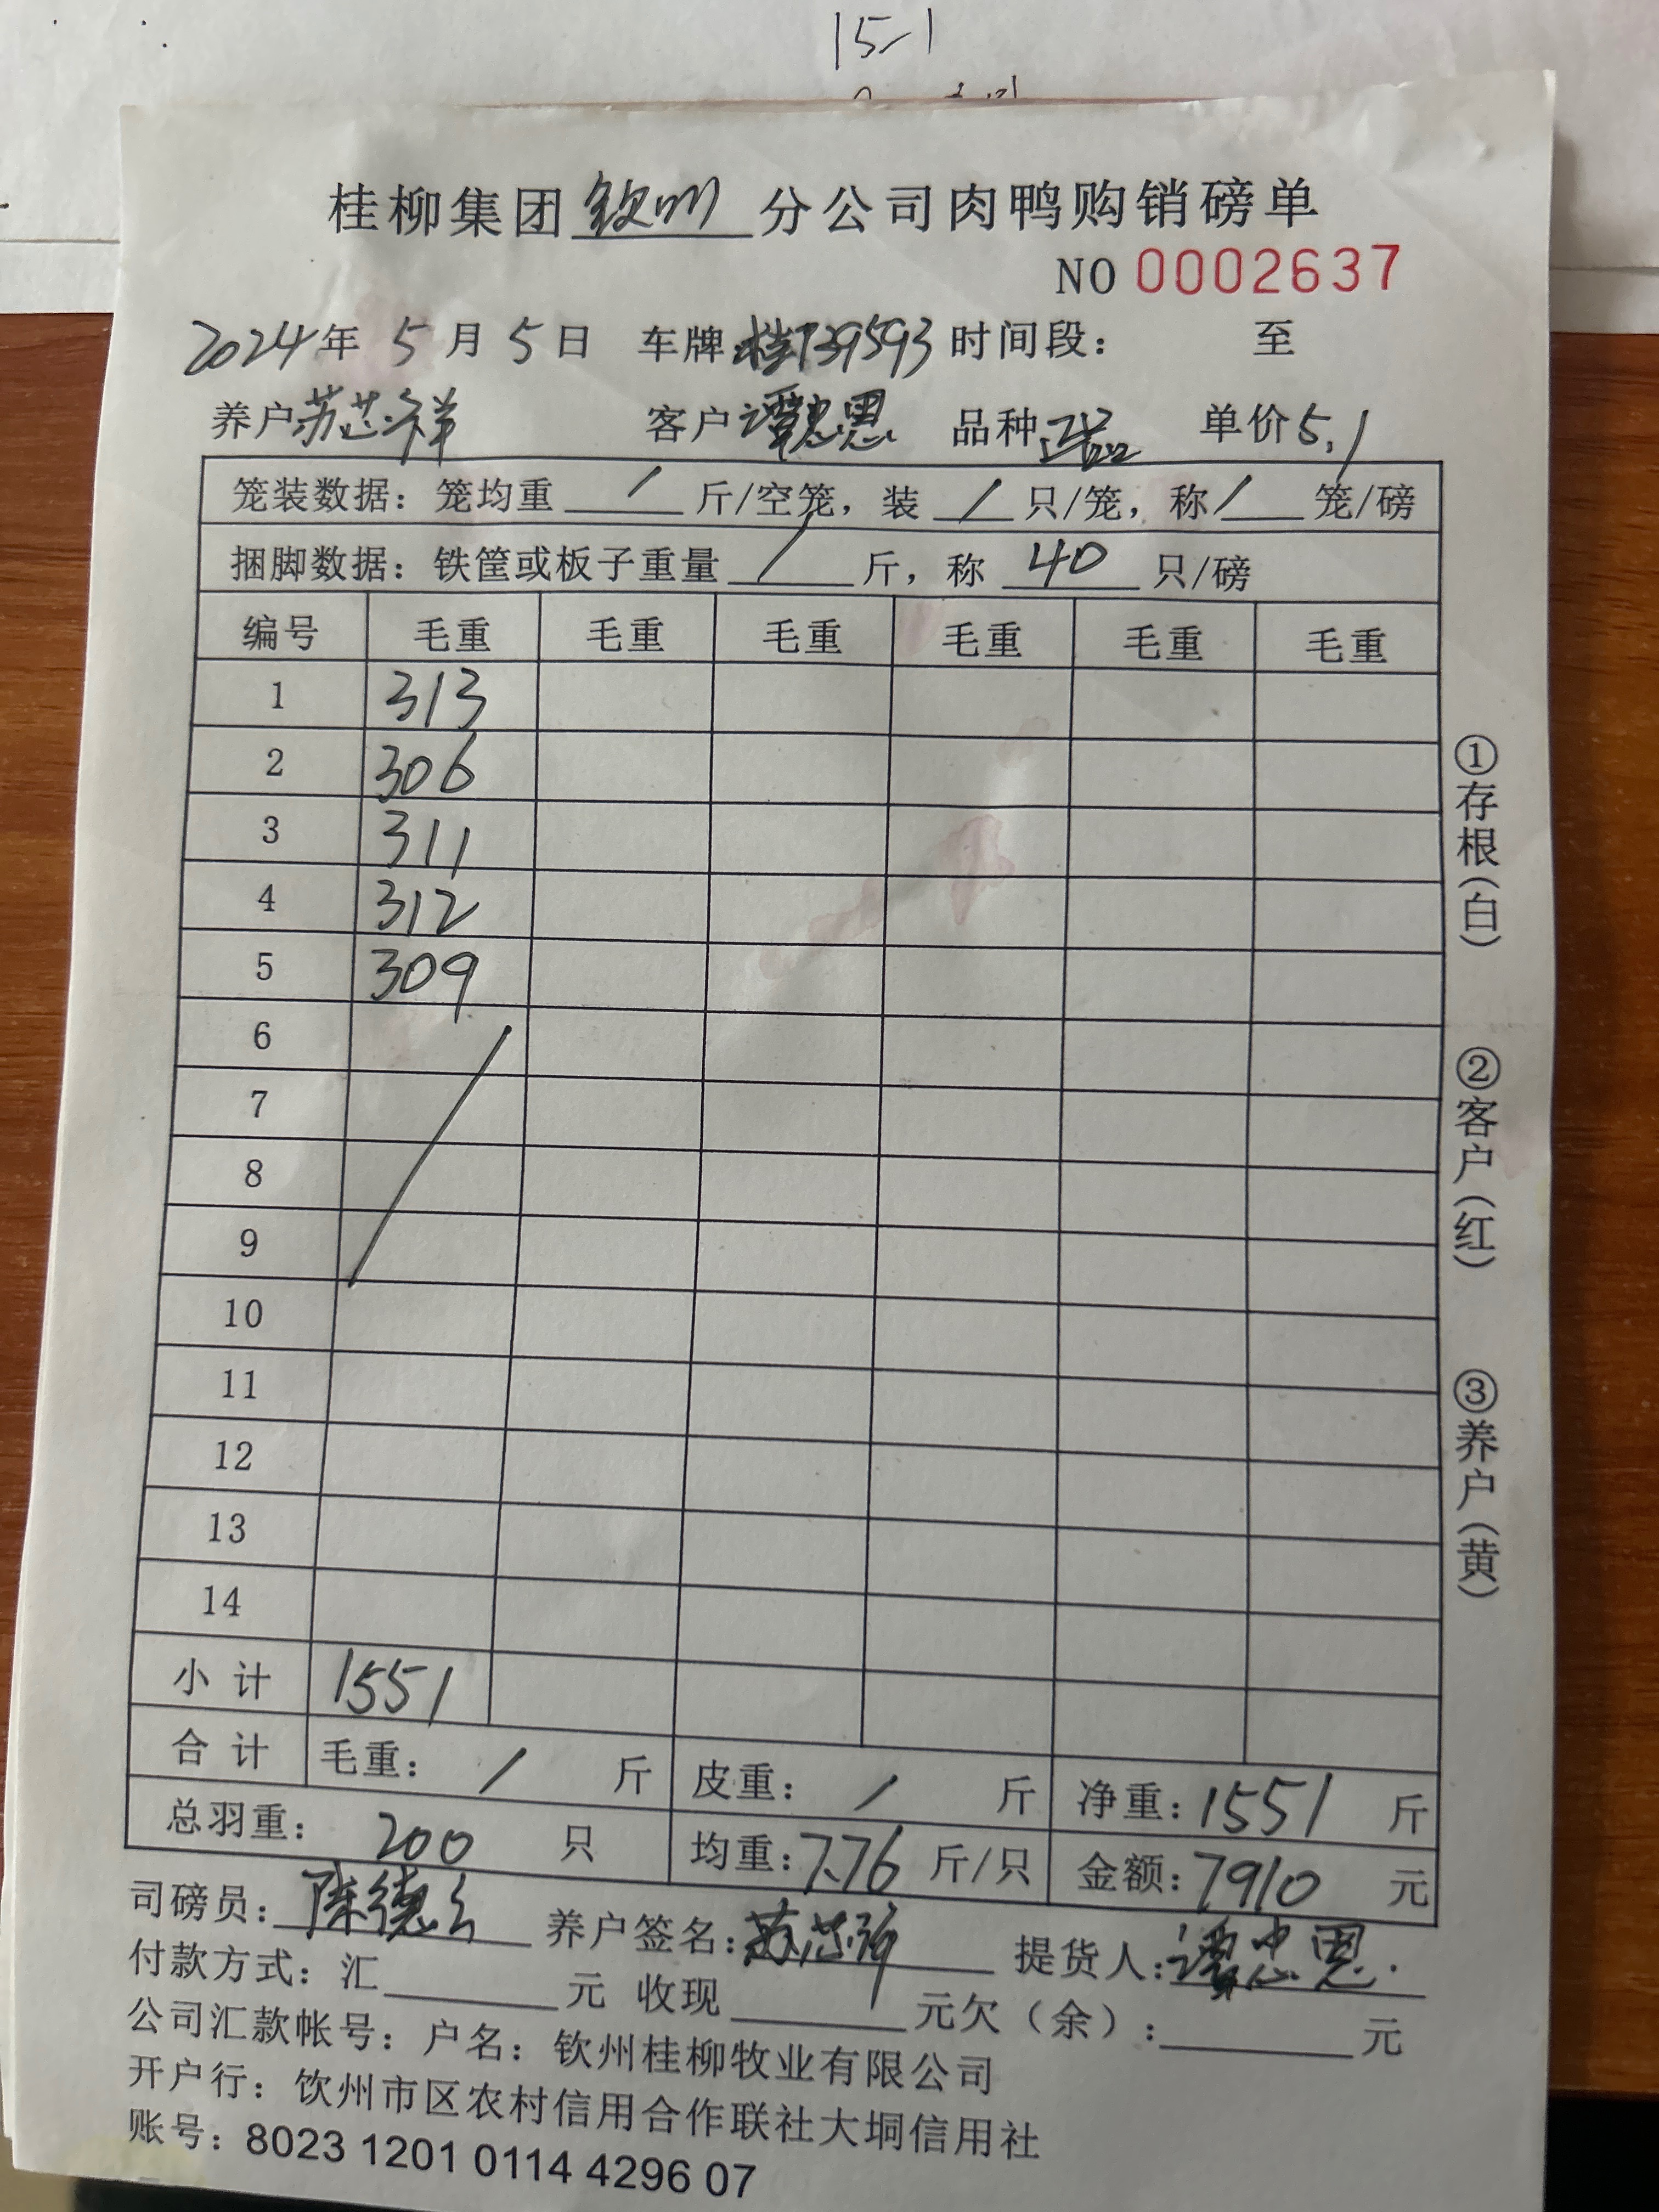 15-1
桂柳集团钦州分公司肉鸭购销磅单
NO 0002637
2024年 5月 5日 车牌:桂 39593 时间段: 至
养户 苏芯祥 客户 谭忠恩 品种 正品 单价 5.1
笼装数据: 笼均重 / 斤/空笼, 装 / 只/笼, 称 / 笼/磅
捆脚数据: 铁筐或板子重量 / 斤, 称 40 只/磅
编号 毛重 毛重 毛重 毛重 毛重 毛重
1 313
2 306
3 311
4 312
5 309
6
7
8
9
10
11
12
13
14
小 计 1551
合 计 毛重: / 斤 皮重: / 斤 净重: 1551 斤
总羽重: 200 只 均重: 7.76 斤/只 金额: 7910 元
司磅员: 陈德 养户签名: 苏芯祥 提货人: 谭忠恩
付款方式: 汇 元 收现 元欠(余): 元
公司汇款帐号: 户名: 钦州桂柳牧业有限公司
开户行: 饮州市区农村信用合作联社大垌信用社
账号: 8023 1201 0114 4296 07
①存根(白)
②客户(红)
③养户(黄)